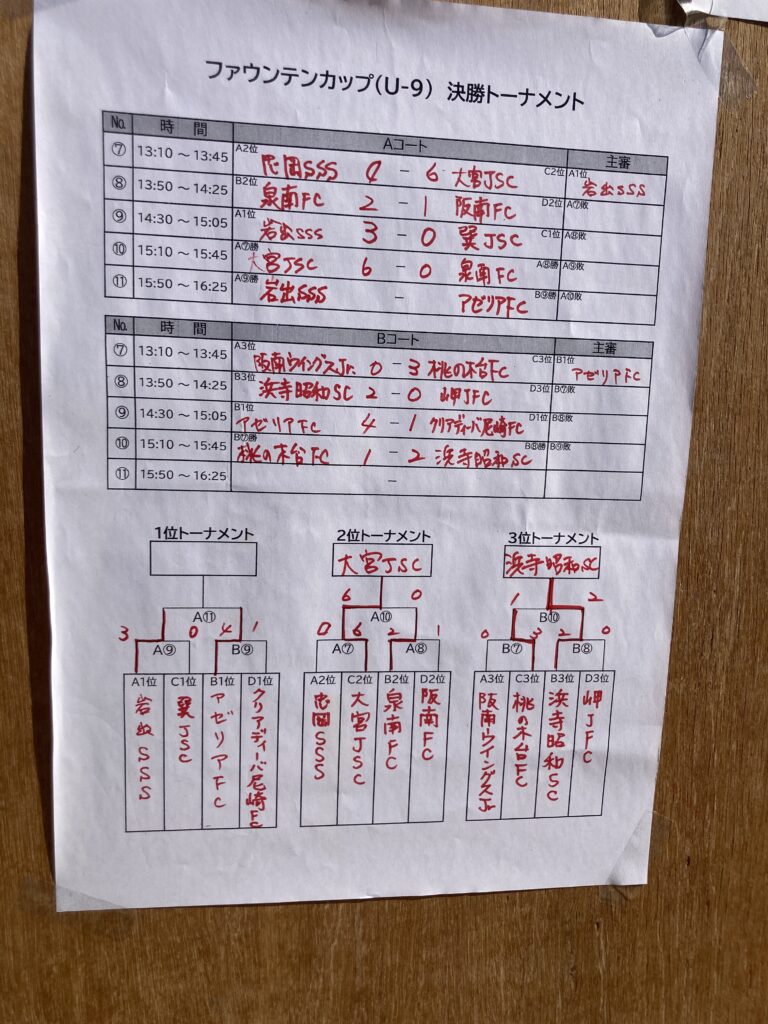 ファウンテンカップ(U-9) 決勝トーナメント
No. 時 間 Aコート 主審
⑦ 13:10 ～ 13:45 A2位 忠岡SSS 0 - 6 大宮JSC C2位 A1位 岩出SSS
⑧ 13:50 ～ 14:25 B2位 泉南FC 2 - 1 阪南FC D2位 A⑦敗
⑨ 14:30 ～ 15:05 A1位 岩出SSS 3 - 0 巽JSC C1位 A⑧敗
⑩ 15:10 ～ 15:45 A⑦勝 大宮JSC 6 - 0 泉南FC A⑧勝 A⑨敗
⑪ 15:50 ～ 16:25 A⑨勝 岩出SSS - アゼリアFC B⑨勝 A⑩敗
No. 時 間 Bコート 主審
⑦ 13:10 ～ 13:45 A3位 阪南ウイングスJr. 0 - 3 桃の木台FC C3位 B1位 アゼリアFC
⑧ 13:50 ～ 14:25 B3位 浜寺昭和SC 2 - 0 岬JFC D3位 B⑦敗
⑨ 14:30 ～ 15:05 B1位 アゼリアFC 4 - 1 クリアディーバ尼崎FC D1位 B⑧敗
⑩ 15:10 ～ 15:45 B⑦勝 桃の木台FC 1 - 2 浜寺昭和SC B⑧勝 B⑨敗
⑪ 15:50 ～ 16:25 -
1位トーナメント 2位トーナメント 3位トーナメント
大宮JSC 浜寺昭和SC
6 0 1 2
A⑪ A⑩ B⑩
3 0 4 1 0 6 2 1 0 3 2 0
A⑨ B⑨ A⑦ A⑧ B⑦ B⑧
A1位 C1位 B1位 D1位 A2位 C2位 B2位 D2位 A3位 C3位 B3位 D3位
岩出SSS
巽JSC
アゼリアFC
クリアディーバ尼崎FC
忠岡SSS
大宮JSC
泉南FC
阪南FC
阪南ウイングスJr
桃の木台FC
浜寺昭和SC
岬JFC